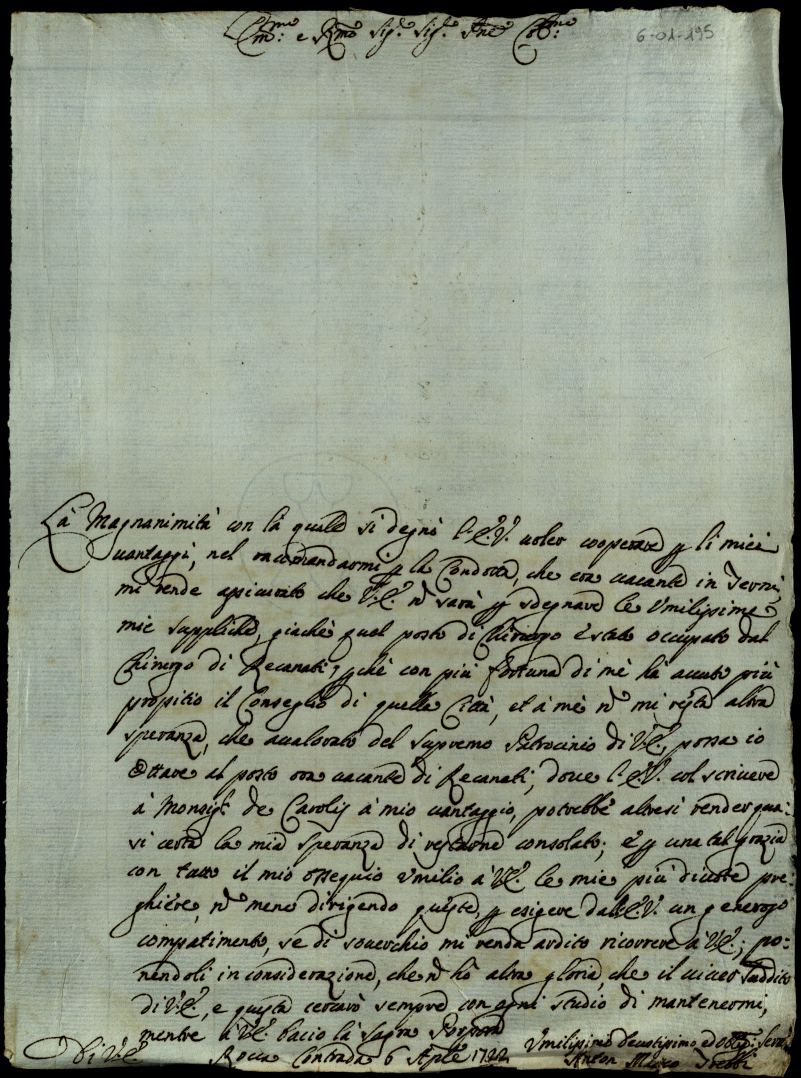 Em:mo e R.mo Sig.r Sig.r Pne Col:mo
6-01-195
La Magnanimità con la quale si degnò l'E.V. voler cooperare p li miei
vantaggi, nel racomandarmi p la Condotta, che era vacante in Terni,
mi rende assicurato che V.E. nō sarà p sdegnare le Umilissime
mie suppliche, giachè quel posto di Chirurgo è stato occupato dal
Chirurgo di Recanati, pchè con più fortuna di mè hà avuto più
propitio il Conseglio di quella Città, et à mè nō mi resta altra
speranza, che avalorato del supremo Patrocinio di V.E. possa io
Ottare al posto ora vacante di Recanati, dove l'E.V. col scrivere
à Monsig.r de Carolis à mio vantaggio, potrebbe altresì render qua:
si certa la mia speranza di restarne consolato; e p una tal grazia
con tutto il mio ossequio umilio à V.E. le mie più divote pre:
ghiere, nō meno dirigendo queste, p esigere dall'E.V. un generoso
compatimento, se di soverchio mi renda ardito ricorrere à V.E.; po:
nendoli in considerazione, che nō hò altra gloria, che il viver suddito
di V.E., e questa cercarò sempre con ogni studio di mantenermi,
mentre à V.E. bacio la sagra Porpora
Di V.E. Rocca Contrada 6 Aple 1722 Umilissimo Devotissimo ed Obb.mo Serv.re
Anton Marco